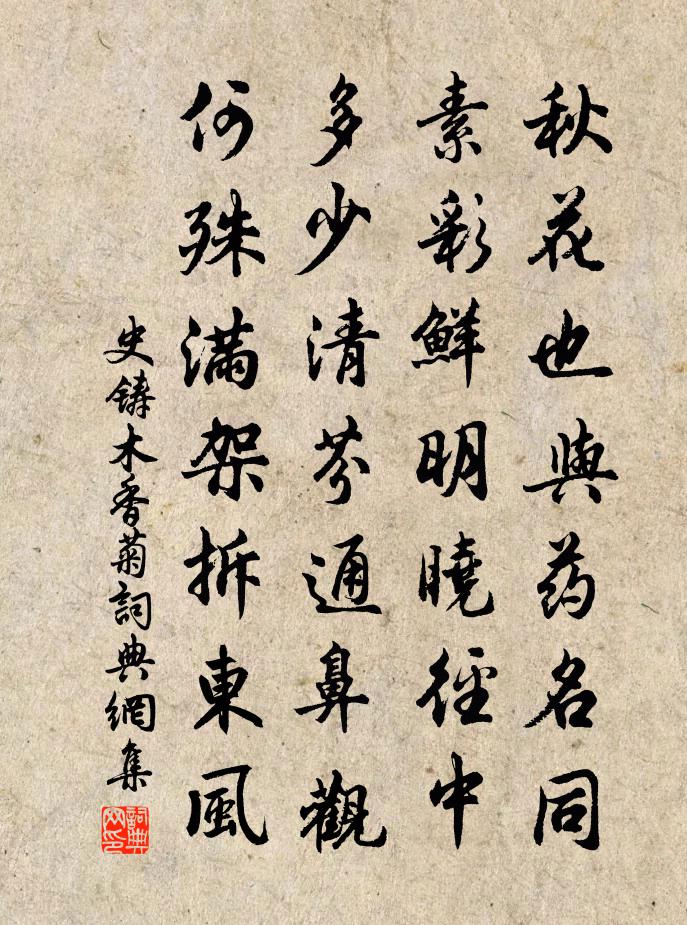 秋花也與药名同
素彩鮮明曉徑中
多少清芬通鼻觀
何殊滿架拆東風
史鑄木香菊詞典網集
詞典网印